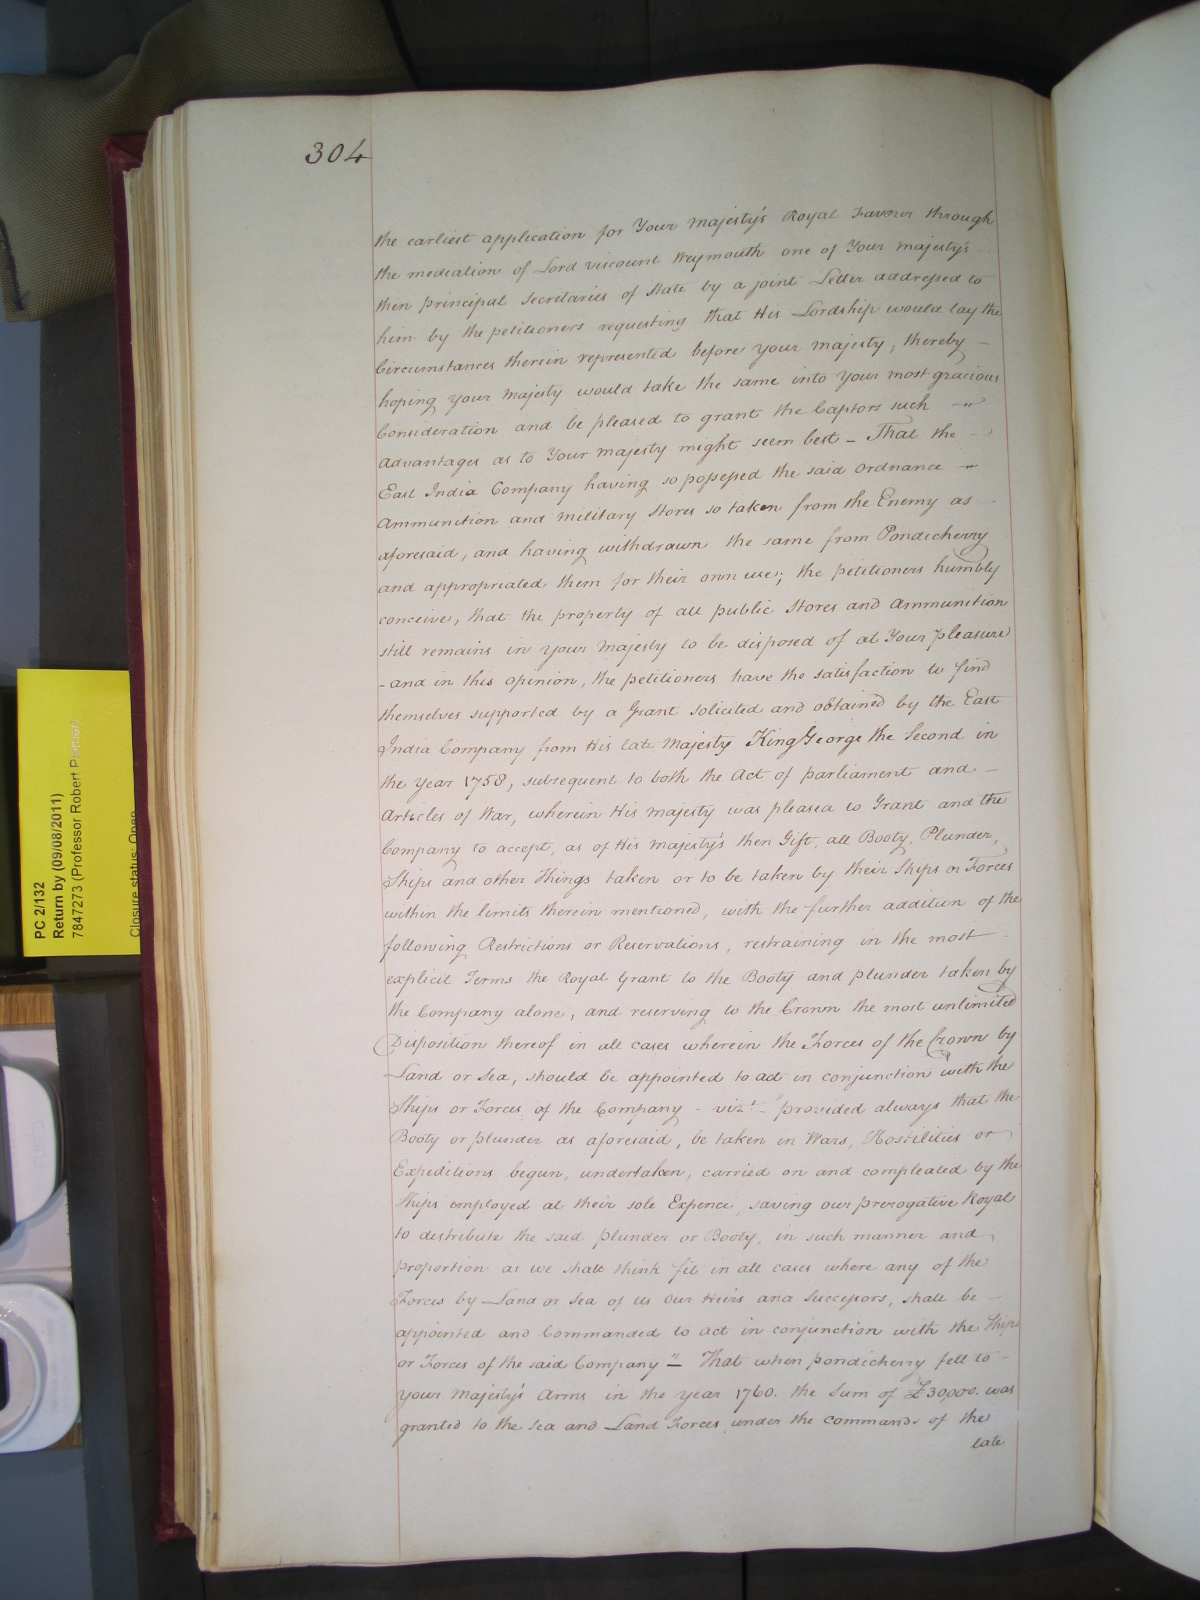 304
the earliest application for Your Majesty's Royal Favour through
the mediation of Lord viscount Weymouth one of Your Majesty's
then principal Secretaries of State by a joint Letter addressed to
him by the petitioners requesting that His Lordship would lay the
Circumstances therein represented before your Majesty, thereby –
hoping your Majesty would take the same into your most gracious
Consideration and be pleased to grant the Captors such –
advantages as to Your Majesty might seem best – That the –
East India Company having so possessed the said Ordnance –
Ammunition and Military Stores so taken from the Enemy as –
aforesaid, and having withdrawn the same from Pondicherry
and appropriated them for their own uses; the petitioners humbly
conceive, that the property of all public Stores and Ammunition
still remains in your Majesty to be disposed of at Your Pleasure
– and in this opinion, the petitioners have the satisfaction to find
themselves supported by a Grant solicited and obtained by the East
India Company from His late Majesty King George the Second in
the year 1758, subsequent to both the Act of parliament and –
Articles of War, wherein His Majesty was pleased to Grant and the
Company to accept, as of His Majesty's then Gift, all Booty, Plunder,
Ships and other Things taken or to be taken by their Ships or Forces
within the limits therein mentioned, with the further addition of the
following Restrictions or Reservations, restraining in the most –
explicit Terms the Royal Grant to the Booty and plunder taken by
the Company alone, and reserving to the Crown the most unlimited
Disposition thereof in all cases wherein the Forces of the Crown by
Land or Sea, should be appointed to act in conjunction with the
Ships or Forces of the Company – vizt. – "provided always that the
Booty or plunder as aforesaid, be taken in Wars, Hostilities or
Expeditions begun, undertaken, carried on and compleated by the
Ships employed at their sole Expence, saving our prerogative Royal
to distribute the said plunder or Booty, in such manner and
proportion as we shall think fit in all cases where any of the
Forces by Land or Sea of us Our Heirs and Successors, shall be –
appointed and Commanded to act in conjunction with the Ships
or Forces of the said Company" – That when pondicherry fell to –
your Majesty's Arms in the year 1760. the Sum of £30,000. was
granted to the Sea and Land Forces under the command of the
late
PC 2/132
Return by (09/08/2011)
7847273 (Professor Robert
Closure status: Open